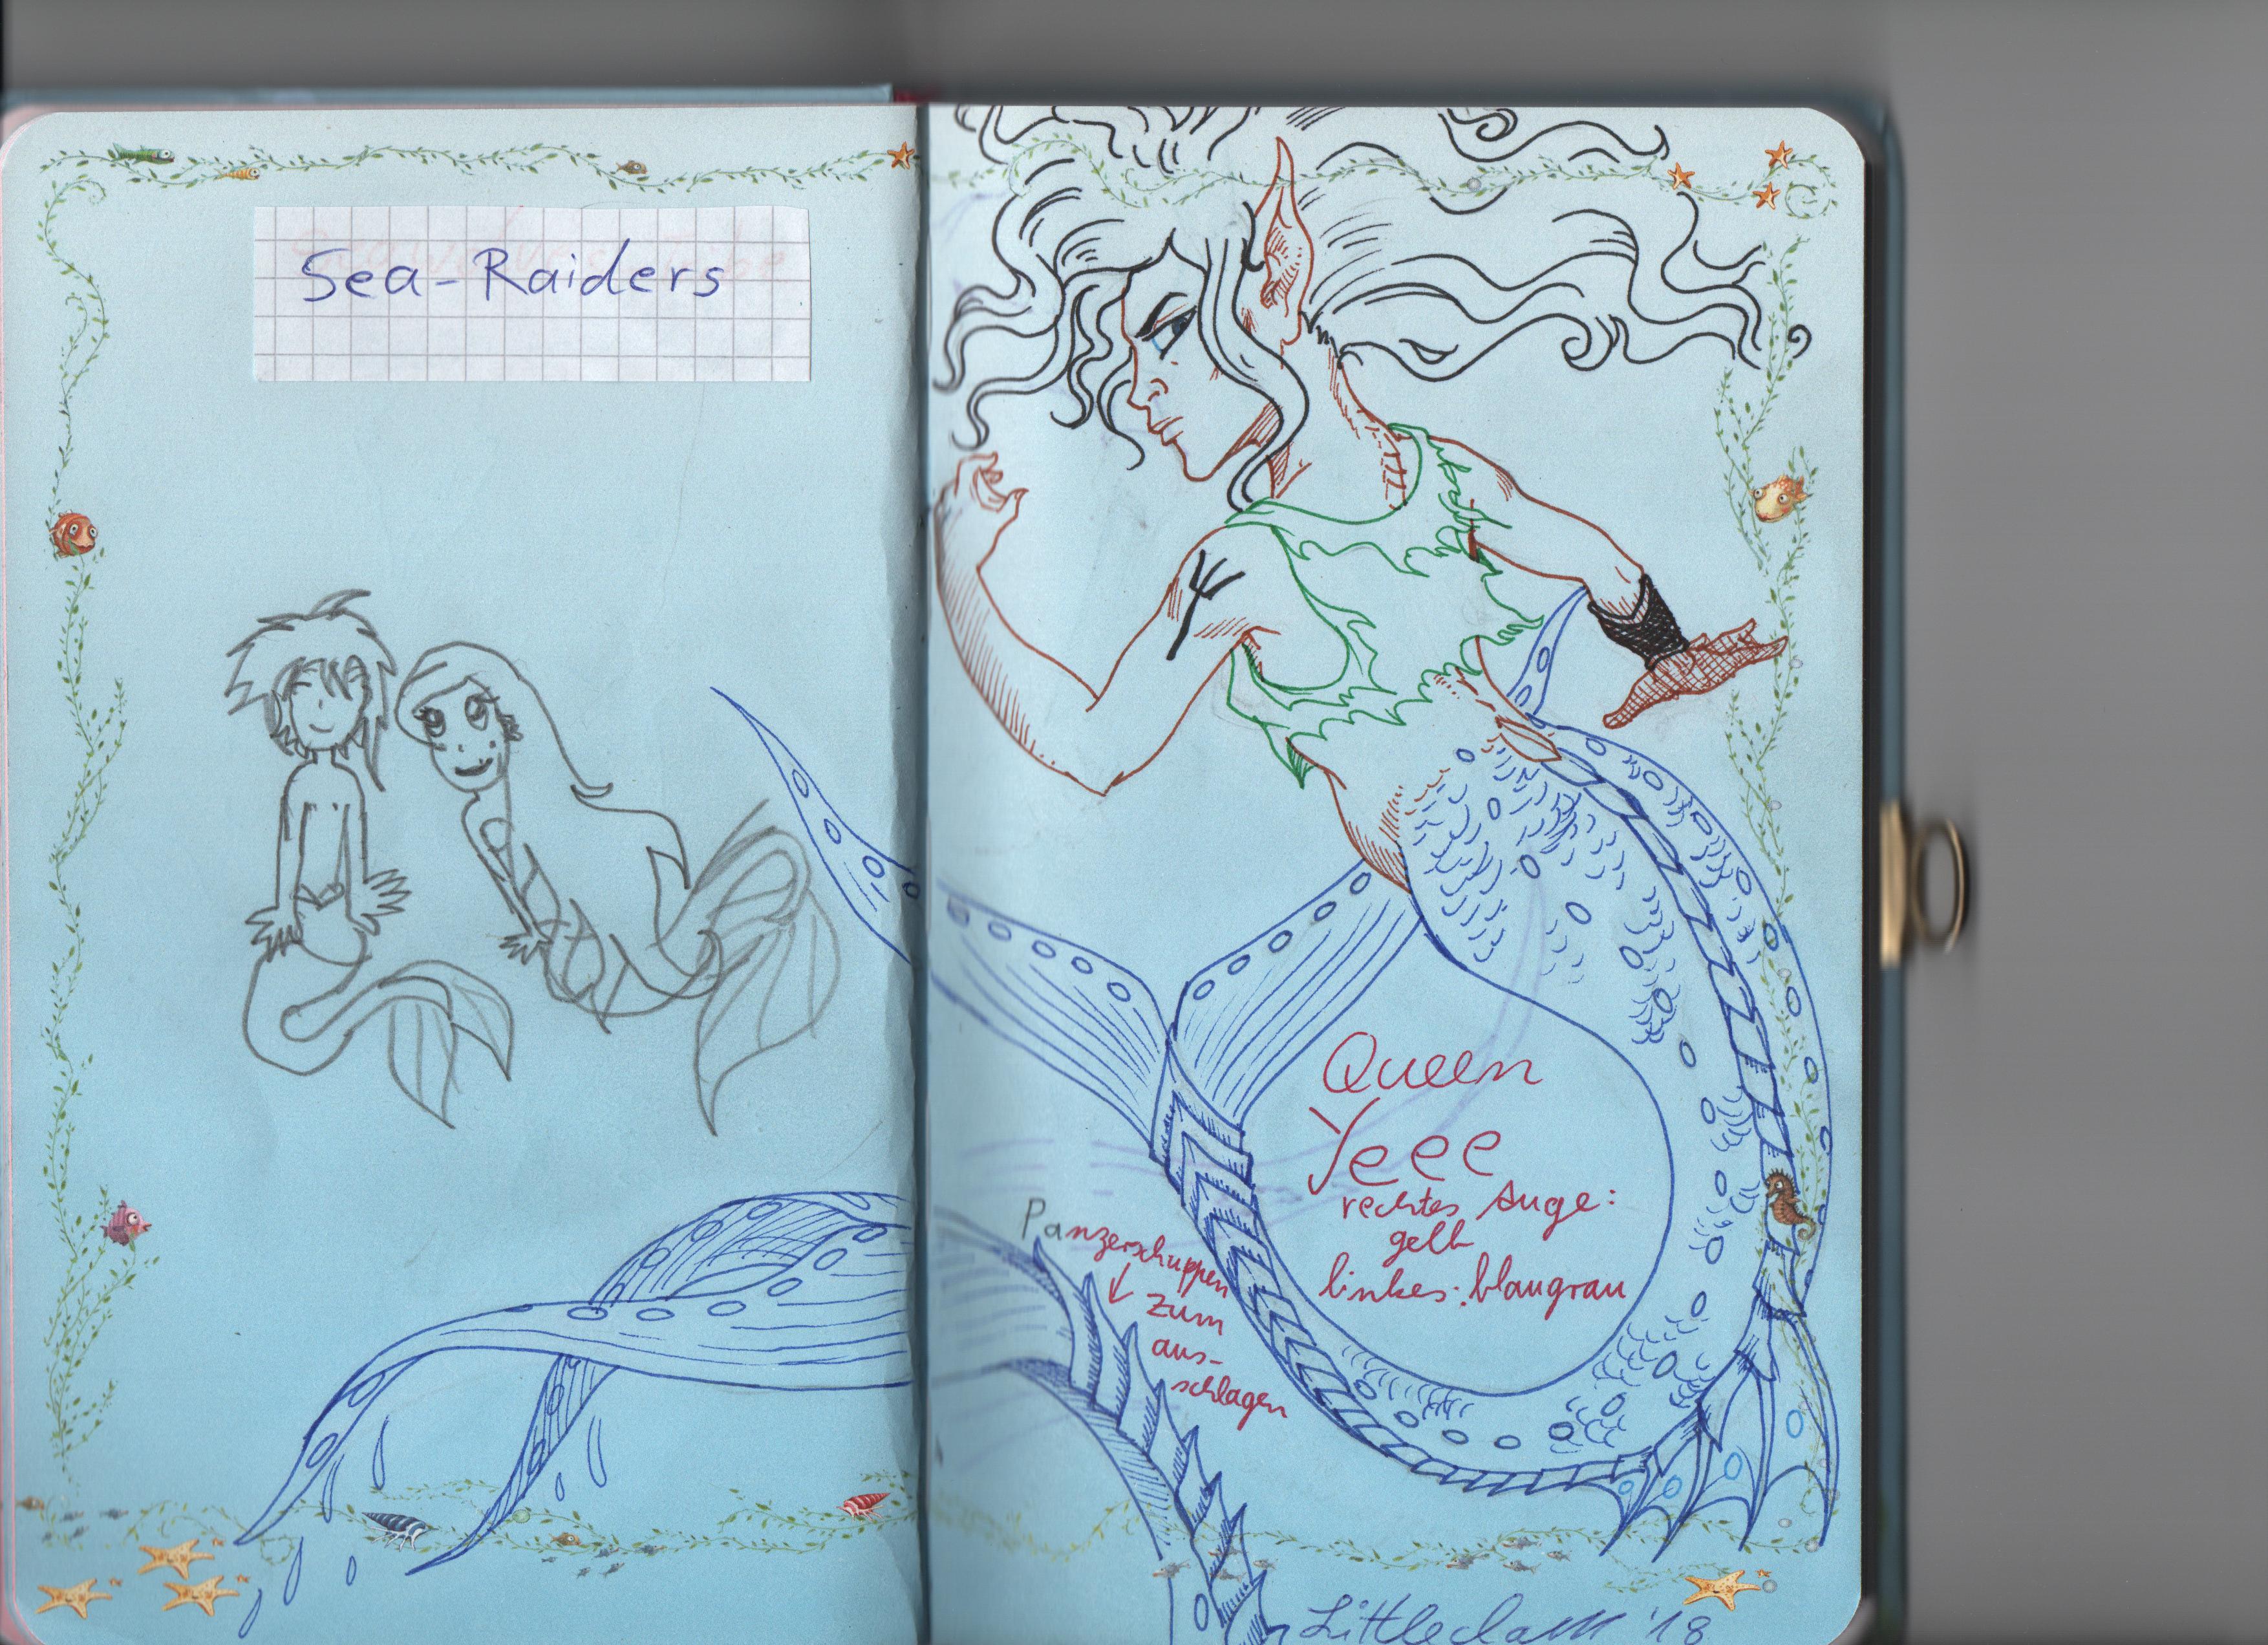 Sea-Raiders
Queen
Yeee
rechtes Auge:
gelb
linkes: blaugrau
Panzerschuppen
zum
aus-
schlagen
'18